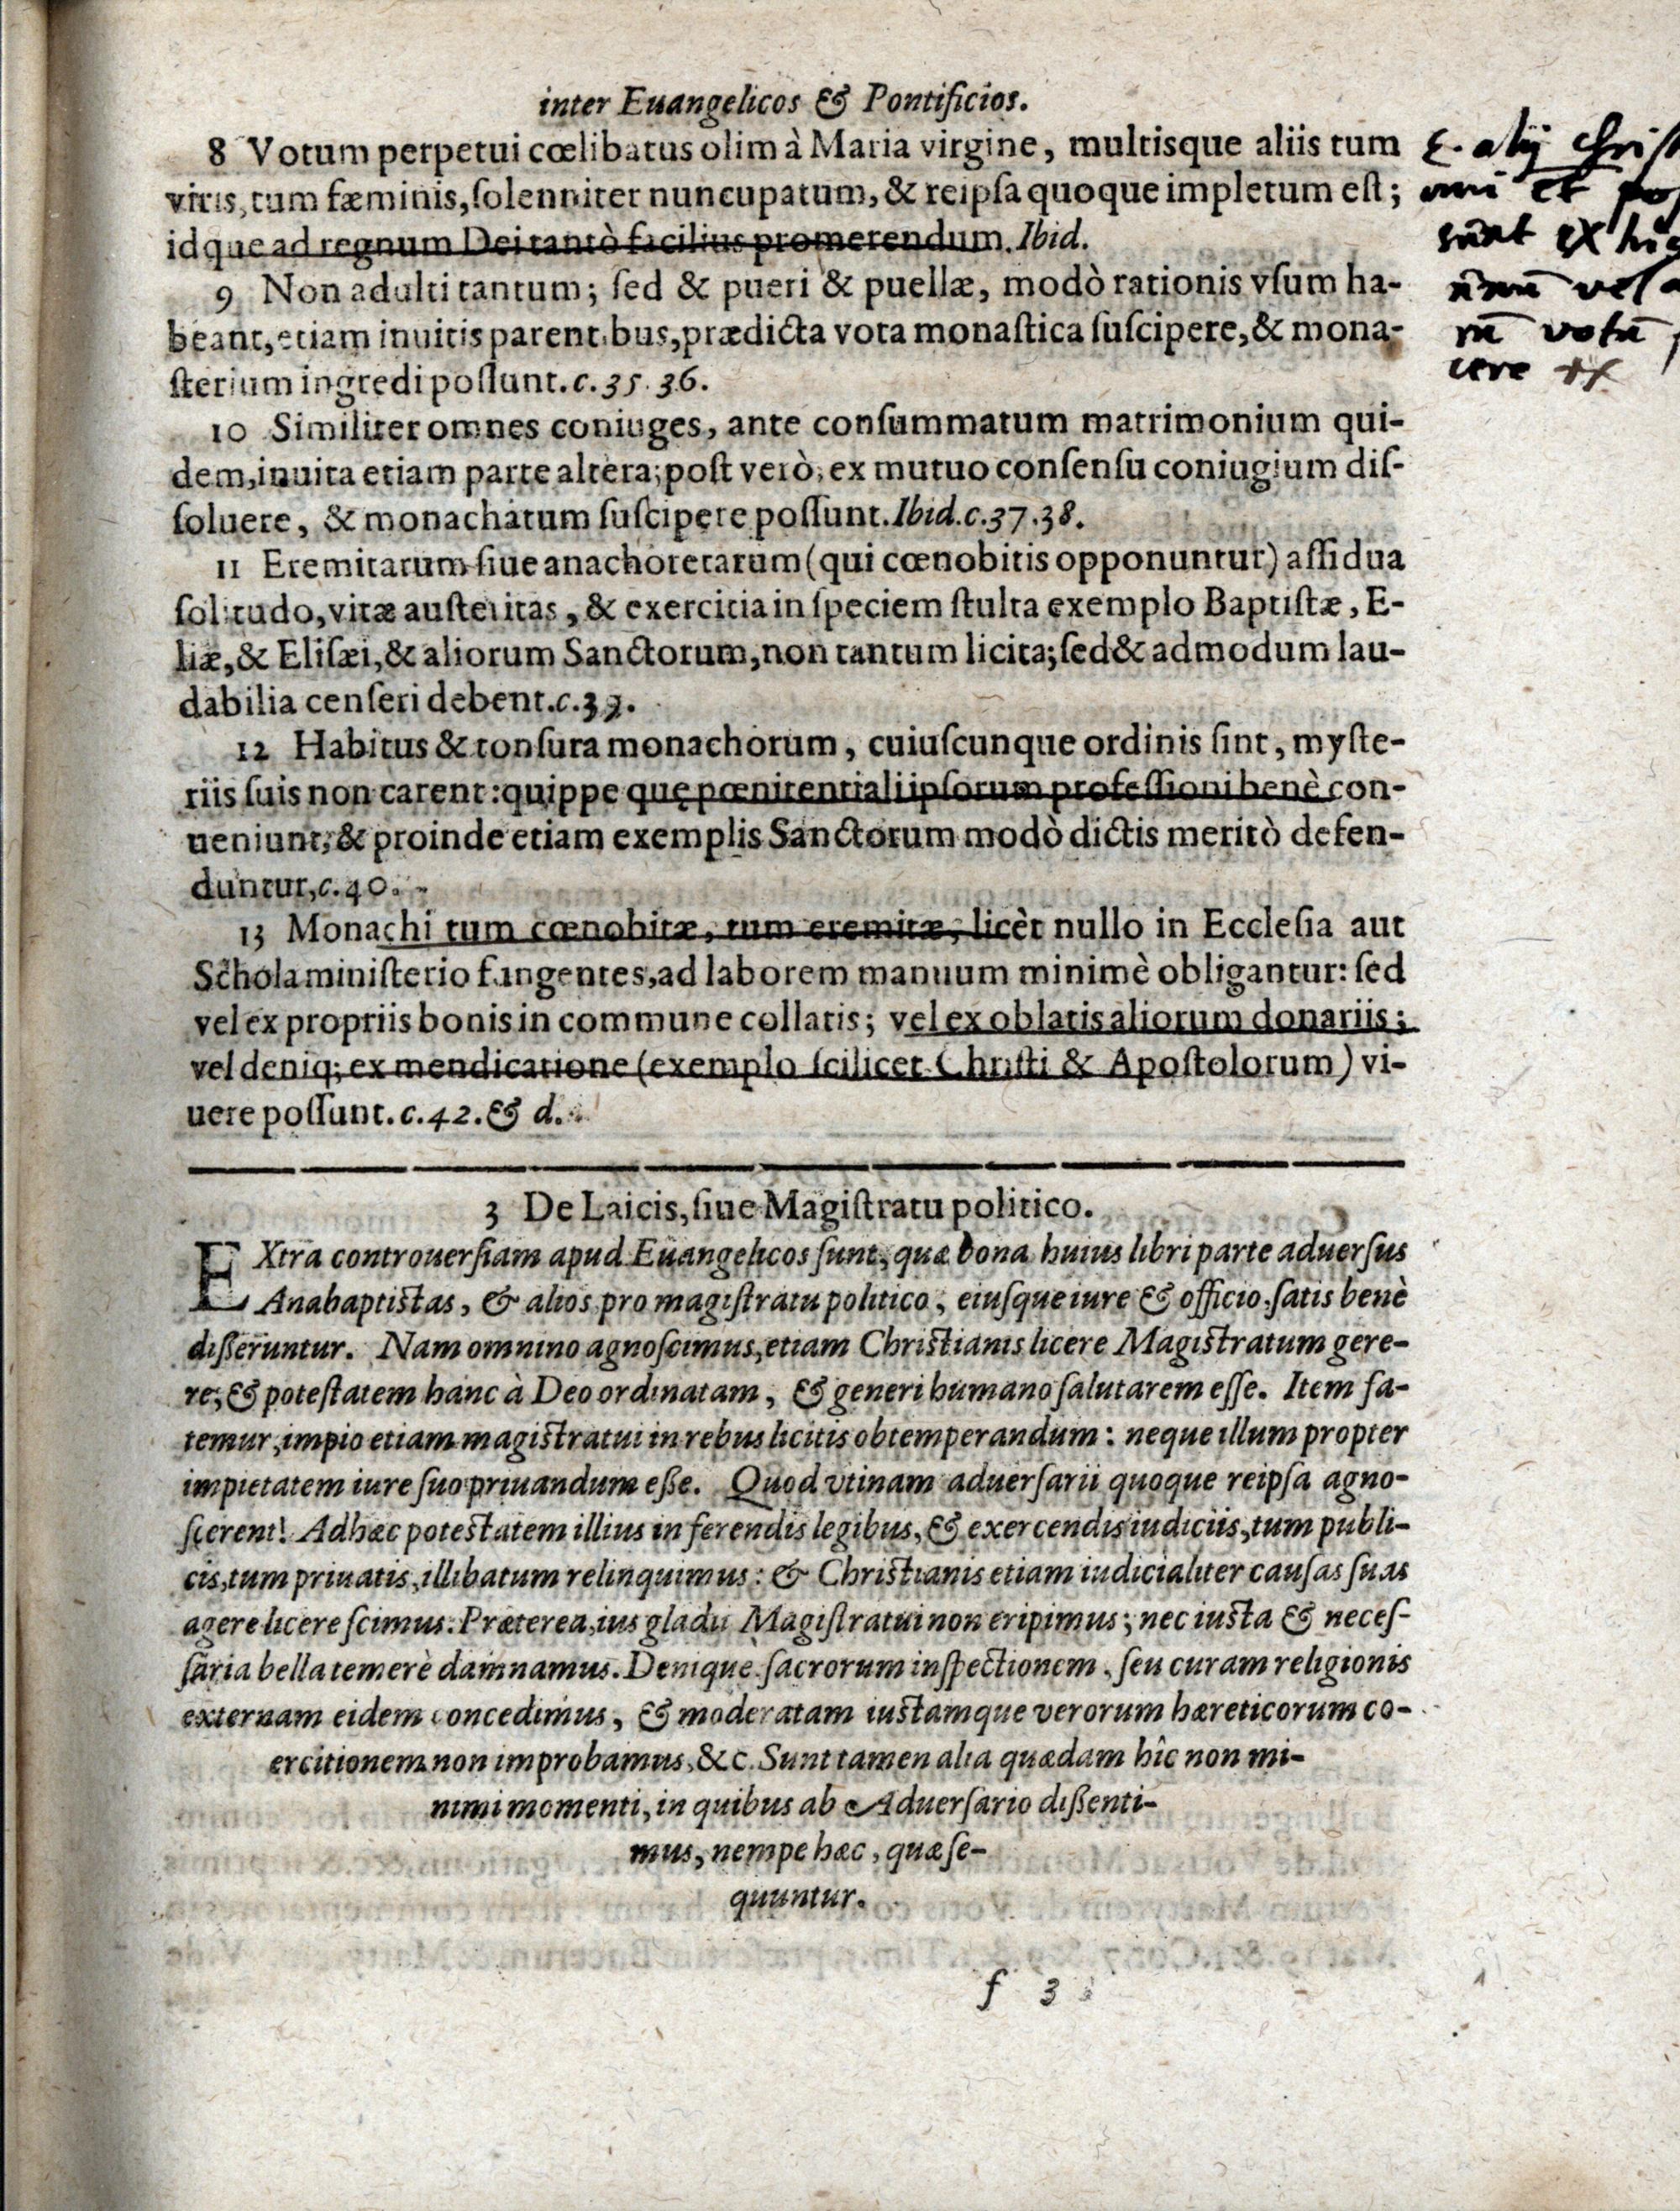 inter Euangelicos & Pontificios.
8 Votum perpetui cœlibatus olim à Maria virgine, multisque aliis tum
viris, tum fæminis, ſolenniter nuncupatum, & reipſa quoque impletum eſt;
idque ad regnum Dei tantò facilius promerendum. Ibid.
9 Non adulti tantum; ſed & pueri & puellæ, modò rationis vſum ha-
beant, etiam inuitis parentibus, prædicta vota monaſtica ſuſcipere, & mona-
ſterium ingredi poſſunt. c. 35. 36.
10 Similiter omnes coniuges, ante conſummatum matrimonium qui-
dem, inuita etiam parte altera; poſt verò, ex mutuo conſenſu coniugium diſ-
ſoluere, & monachatum ſuſcipere poſſunt. Ibid. c. 37. 38.
11 Eremitarum ſiue anachoretarum (qui cœnobitis opponuntur) aſſidua
ſolitudo, vitæ auſteritas, & exercitia in ſpeciem ſtulta exemplo Baptiſtæ, E-
liæ, & Eliſæi, & aliorum Sanctorum, non tantum licita; ſed & admodum lau-
dabilia cenſeri debent. c. 39.
12 Habitus & tonſura monachorum, cuiuſcunque ordinis ſint, myſte-
riis ſuis non carent: quippe quę pœnitentiali ipſorum profeſſioni benè con-
ueniunt; & proinde etiam exemplis Sanctorum modò dictis meritò defen-
duntur, c. 40.
13 Monachi tum cœnobitæ, tum eremitæ, licèt nullo in Eccleſia aut
Schola miniſterio fungentes, ad laborem manuum minimè obligantur: ſed
vel ex propriis bonis in commune collatis; vel ex oblatis aliorum donariis;
vel deniq; ex mendicatione (exemplo ſcilicet Chriſti & Apoſtolorum) vi-
uere poſſunt. c. 42. & d.
3 De Laicis, ſiue Magiſtratu politico.
EXtra controuerſiam apud Euangelicos ſunt, quæ bona huius libri parte aduerſus
Anabaptiſtas, & alios pro magiſtratu politico, eiuſque iure & officio ſatis benè
diſſeruntur. Nam omnino agnoſcimus, etiam Chriſtianis licere Magiſtratum gere-
re, & poteſtatem hanc à Deo ordinatam, & generi humano ſalutarem eſſe. Item fa-
temur, impio etiam magiſtratui in rebus licitis obtemperandum: neque illum propter
impietatem iure ſuo priuandum eſſe. Quod vtinam aduerſarii quoque reipſa agno-
ſcerent! Ad hæc poteſtatem illius in ferendis legibus, & exercendis iudiciis, tum publi-
cis, tum priuatis, illibatum relinquimus: & Chriſtianis etiam iudicialiter cauſas ſuas
agere licere ſcimus. Præterea, ius gladii Magiſtratui non eripimus; nec iuſta & neceſ-
ſaria bella temerè damnamus. Denique ſacrorum inſpectionem, ſeu curam religionis
externam eidem concedimus, & moderatam iuſtamque verorum hæreticorum co-
ercitionem non improbamus, &c. Sunt tamen alia quædam hîc non mi-
nimi momenti, in quibus ab Aduerſario diſſenti-
mus, nempe hæc, quæ ſe-
quuntur.
f 3
alij
et
ex
vel
votū
cere